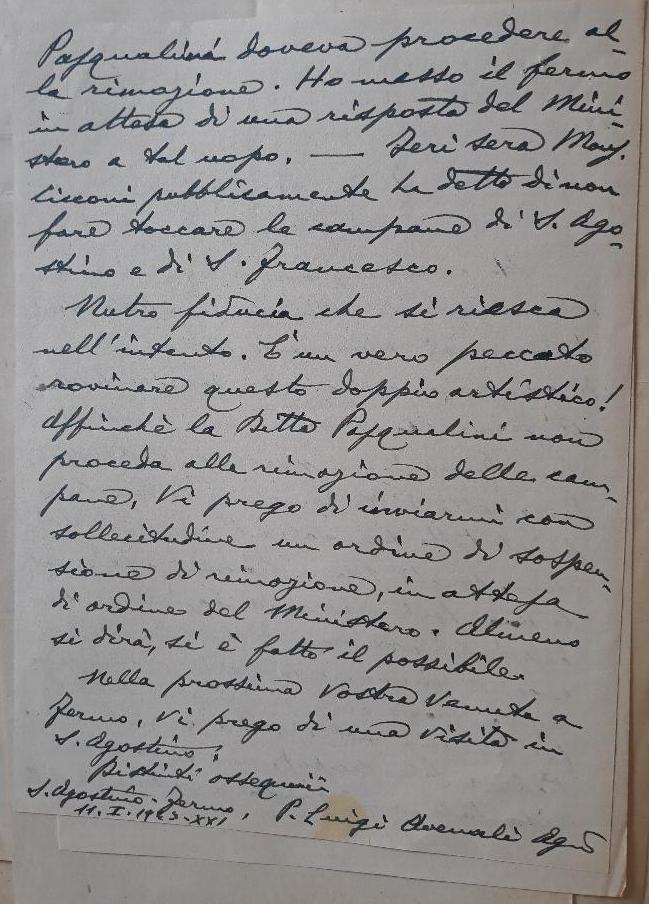 Pasqualini doveva procedere al-
la rimozione. Ho messo il fermo
in attesa di una risposta del Mini-
stero a tal uopo. — Ieri sera Mons.
pubblicamente ha detto di non
fare toccare le campane di S. Ago-
stino e di S. Francesco.
Nutro fiducia che si riesca
nell'intento. È un vero peccato
rovinare questo doppio artistico!
Affinchè la Ditta Pasqualini non
proceda alla rimozione delle cam-
pane, Vi prego di inviarmi con
sollecitudine un ordine di sospen-
sione di rimozione, in attesa
di ordine del Ministero. Almeno
si dirà, si è fatto il possibile.
Nella prossima Vostra venuta a
Fermo, Vi prego di una visita in
S. Agostino.
Distinti ossequii
S. Agostino - Fermo, P. Luigi Avenali
11. I. 1943-XXI